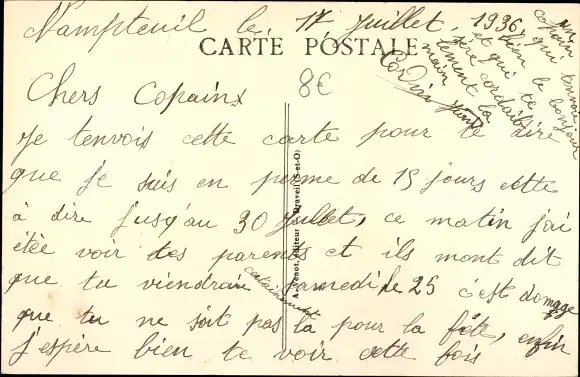 Nampteuil le, 17 Juillet, 1936,
CARTE POSTALE
8€
Chers Copains
Je tenvois cette carte pour te dire
que je suis en perme de 15 jours cette
à dire jusqu'au 30 Juillet, ce matin j'ai
étée voir tes parents et ils mont dit
que tu viendrai certainement samedi le 25 c'est domage
que tu ne soit pas là pour la fête, enfin
j'espère bien te voir cette fois
un copain qui tenvoie
bien le bonjour
et qui te
sère cordialement la
main
A. Venot, éditeur à Draveil (S-et-O)